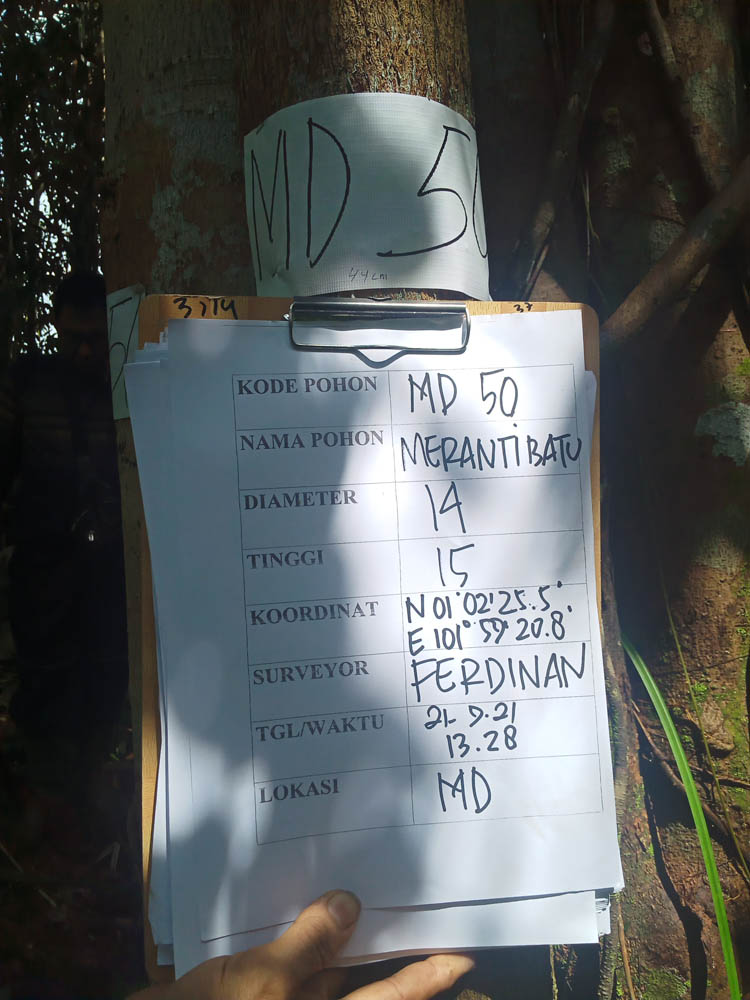 MD 50
44cm
37
KODE POHON MD 50
NAMA POHON MERANTI BATU
DIAMETER 14
TINGGI 15
KOORDINAT N 01°02'25.5"
E 101° 59' 20.8"
SURVEYOR FERDINAN
TGL/WAKTU 21-9-21
13.28
LOKASI MD